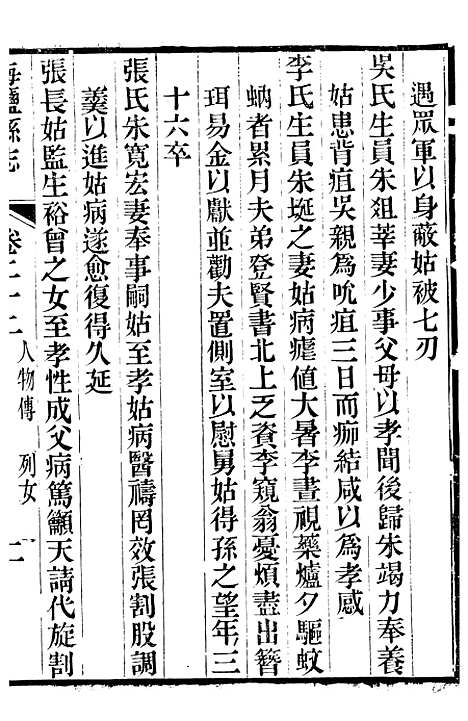 遇眾軍以身蔽姑被七刃
吳氏生員朱爼莘妻少事父母以孝聞後歸朱竭力奉養
姑患背疽吳親為吮疽三日而痂結咸以為孝感
李氏生員朱埏之妻姑病瘧值大暑李晝視藥爐夕驅蚊
蚋者累月夫弟登賢書北上乏資李窺翁憂煩盡出簪
珥易金以獻並勸夫置側室以慰舅姑得孫之望年三
十六卒
張氏朱寬宏妻奉事嗣姑至孝姑病醫禱罔效張割股調
羹以進姑病遂愈復得久延
張長姑監生裕曾之女至孝性成父病篤籲天請代旋割
海鹽縣志
卷二十二
人物傳 列女